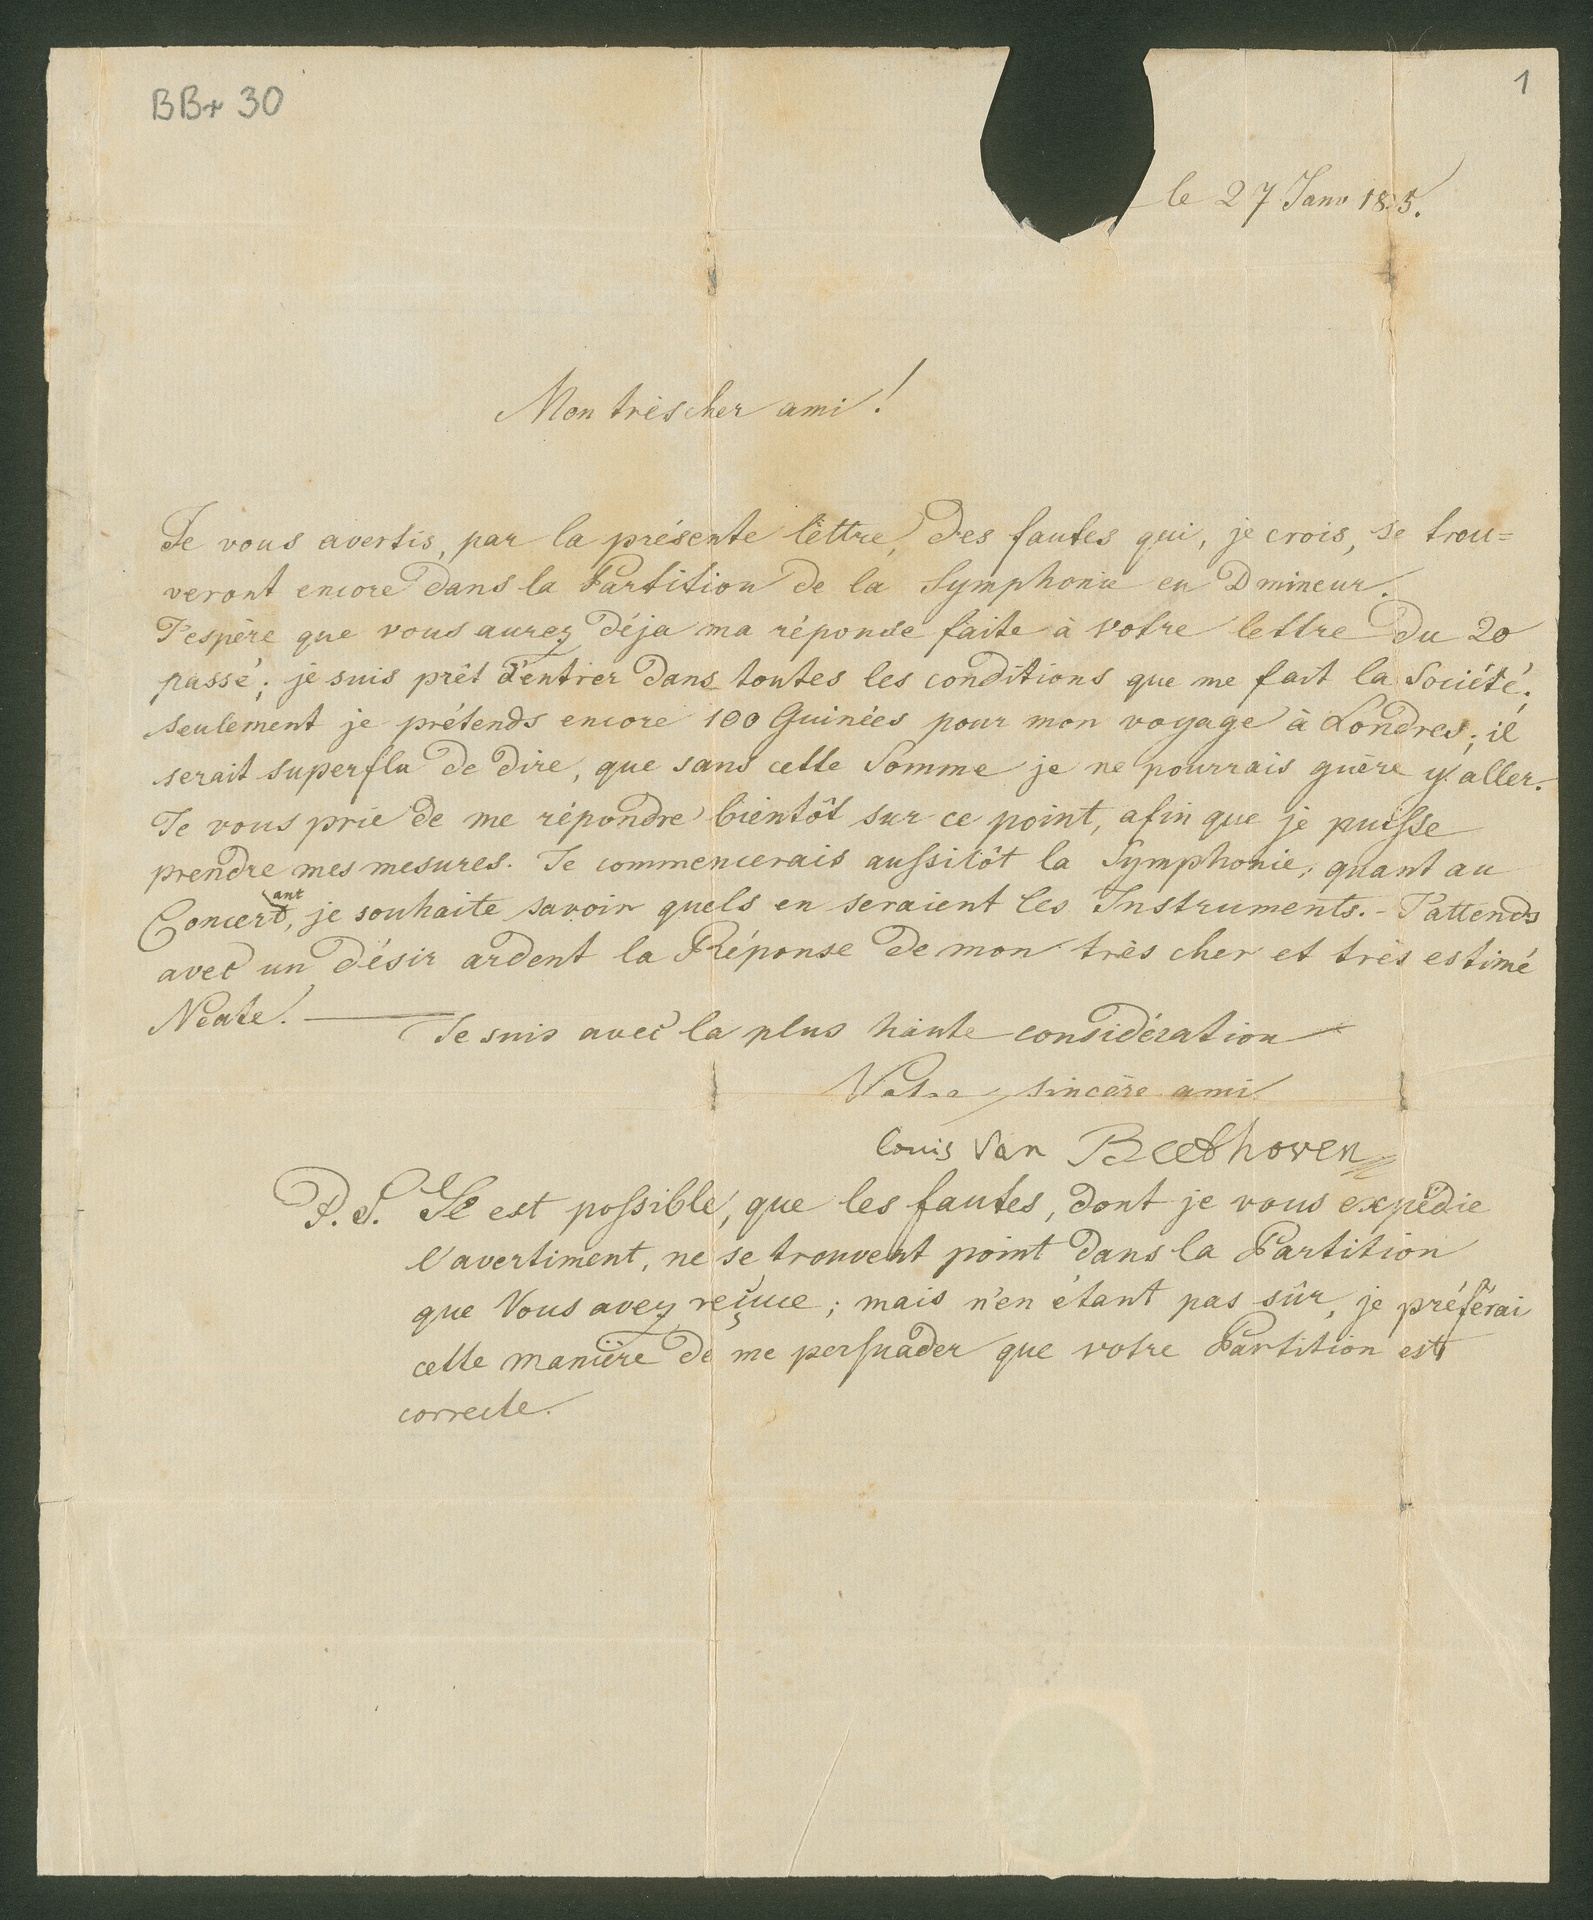 BBr 30
1
le 27 Janv 1825.
Mon très cher ami!
Je vous avertis, par la présente lèttre, des fautes qui, je crois, se trou=
veront encore dans la Partition de la Symphonie en D mineur.
J'espère que vous aurez déja ma réponse faite à votre lettre du 20
passé; je suis prêt d'entrer dans toutes les conditions que me fait la Société;
seulement je prétends encore 100 Guinées pour mon voyage à Londres; il
serait superflu de dire, que sans cette Somme je ne pourrais guère y aller.
Je vous prie de me répondre bientôt sur ce point, afin que je puisse
prendre mes mesures. Je commencerais aussitôt la Symphonie; quant au
ant
Concert, je souhaite savoir quels en seraient les Instruments. - J'attends
avec un désir ardent la Réponse de mon très cher et très estimé
Neate! —
Je suis avec la plus haute considération
Votre sincère ami
louis van Beethoven
P. S. Il est possible, que les fautes, dont je vous expédie
l'avertiment, ne se trouvent point dans la Partition
que Vous avez reçue; mais n'en étant pas sûr, je préférai
cette manière de me persuader que votre Partition est
correcte.